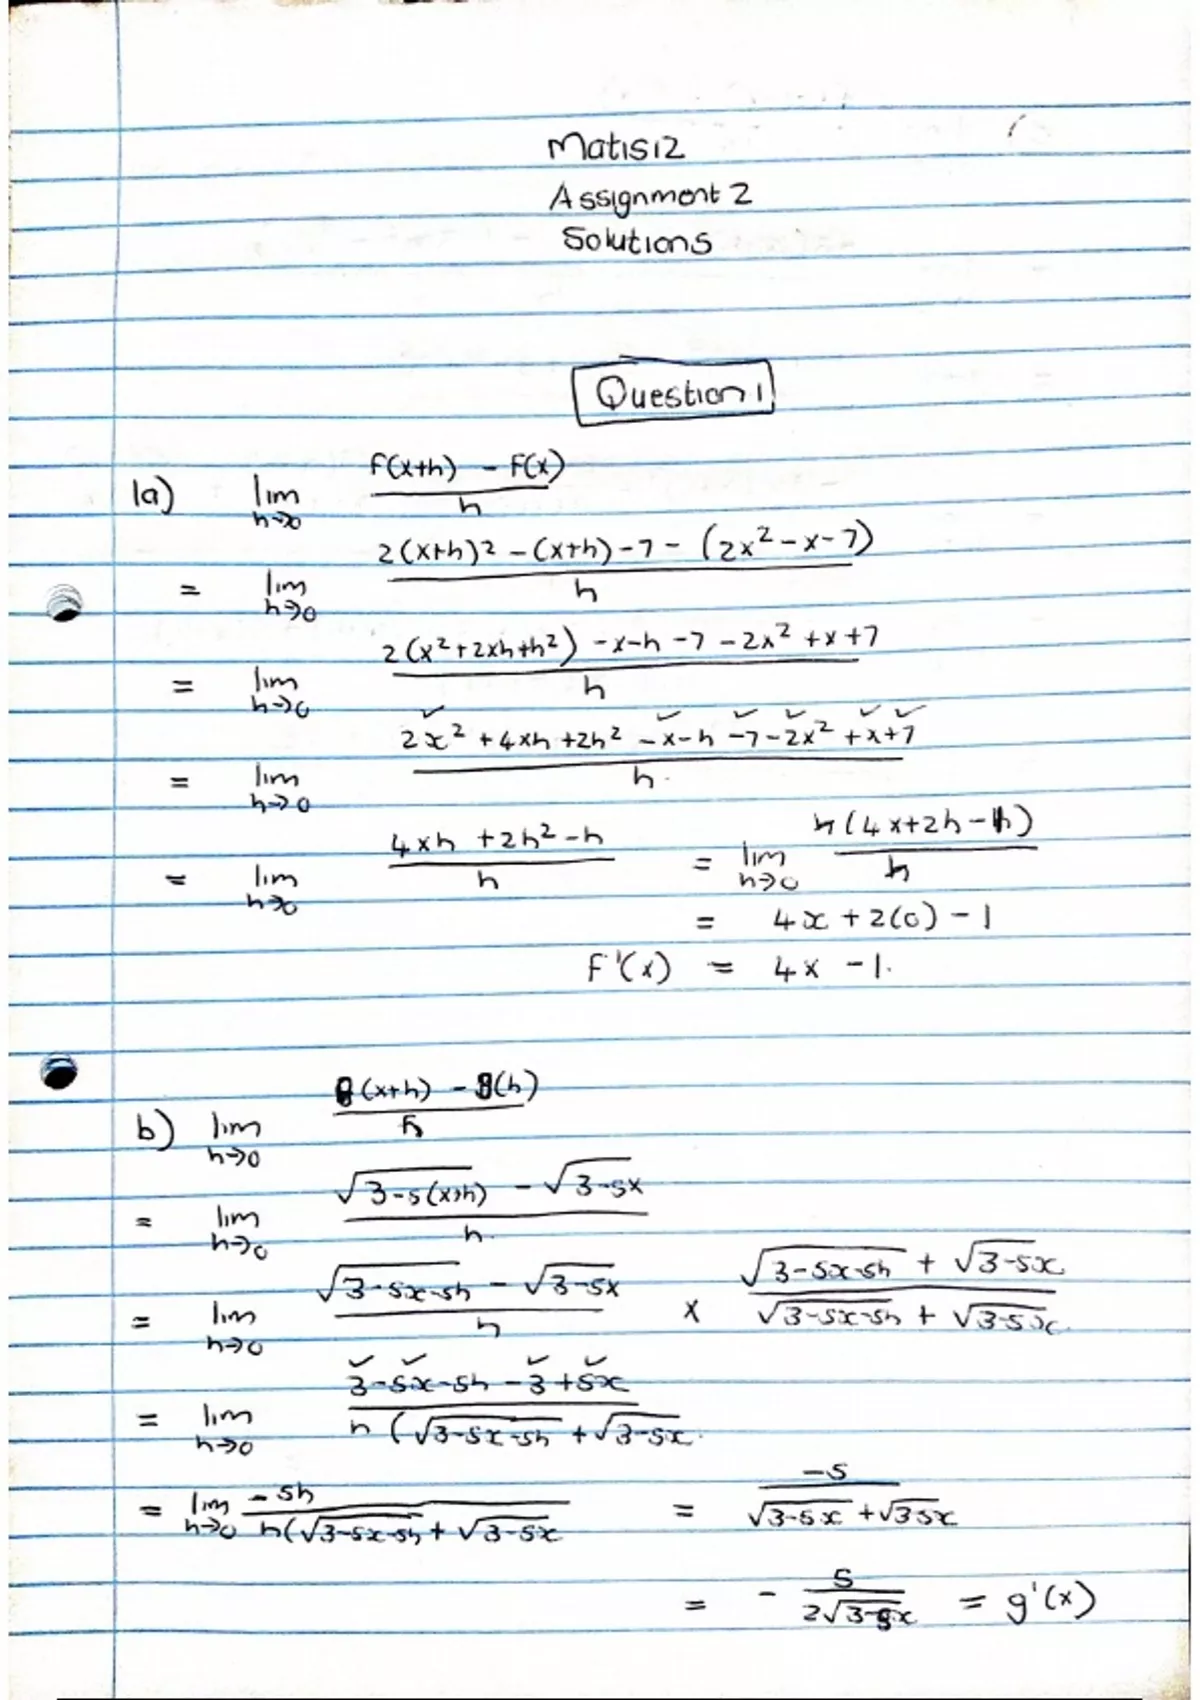 Mat1512
Assignment 2
Solutions
Question 1
1a) lim h→0 F(x+h) - F(x) / h
= lim h→0 2(x+h)2 - (x+h) - 7 - (2x² - x - 7) / h
= lim h→0 2(x² + 2xh + h²) - x - h - 7 - 2x² + x + 7 / h
= lim h→0 2x² + 4xh + 2h² - x - h - 7 - 2x² + x + 7 / h.
= lim h→0 4xh + 2h² - h / h = lim h→0 h(4x + 2h - 1) / h
= 4x + 2(0) - 1
F'(x) = 4x - 1.
b) lim h→0 g(x+h) - g(h) / h
= lim h→0 √3-5(x+h) - √3-5x / h.
= lim h→0 √3-5x-5h - √3-5x / h × √3-5x-5h + √3-5x / √3-5x-5h + √3-5x.
= lim h→0 3-5x-5h-3+5x / h (√3-5x-5h + √3-5x.
= lim h→0 -5h / h(√3-5x-5h + √3-5x = -5 / √3-5x + √3-5x
= - 5 / 2√3-5x = g'(x)